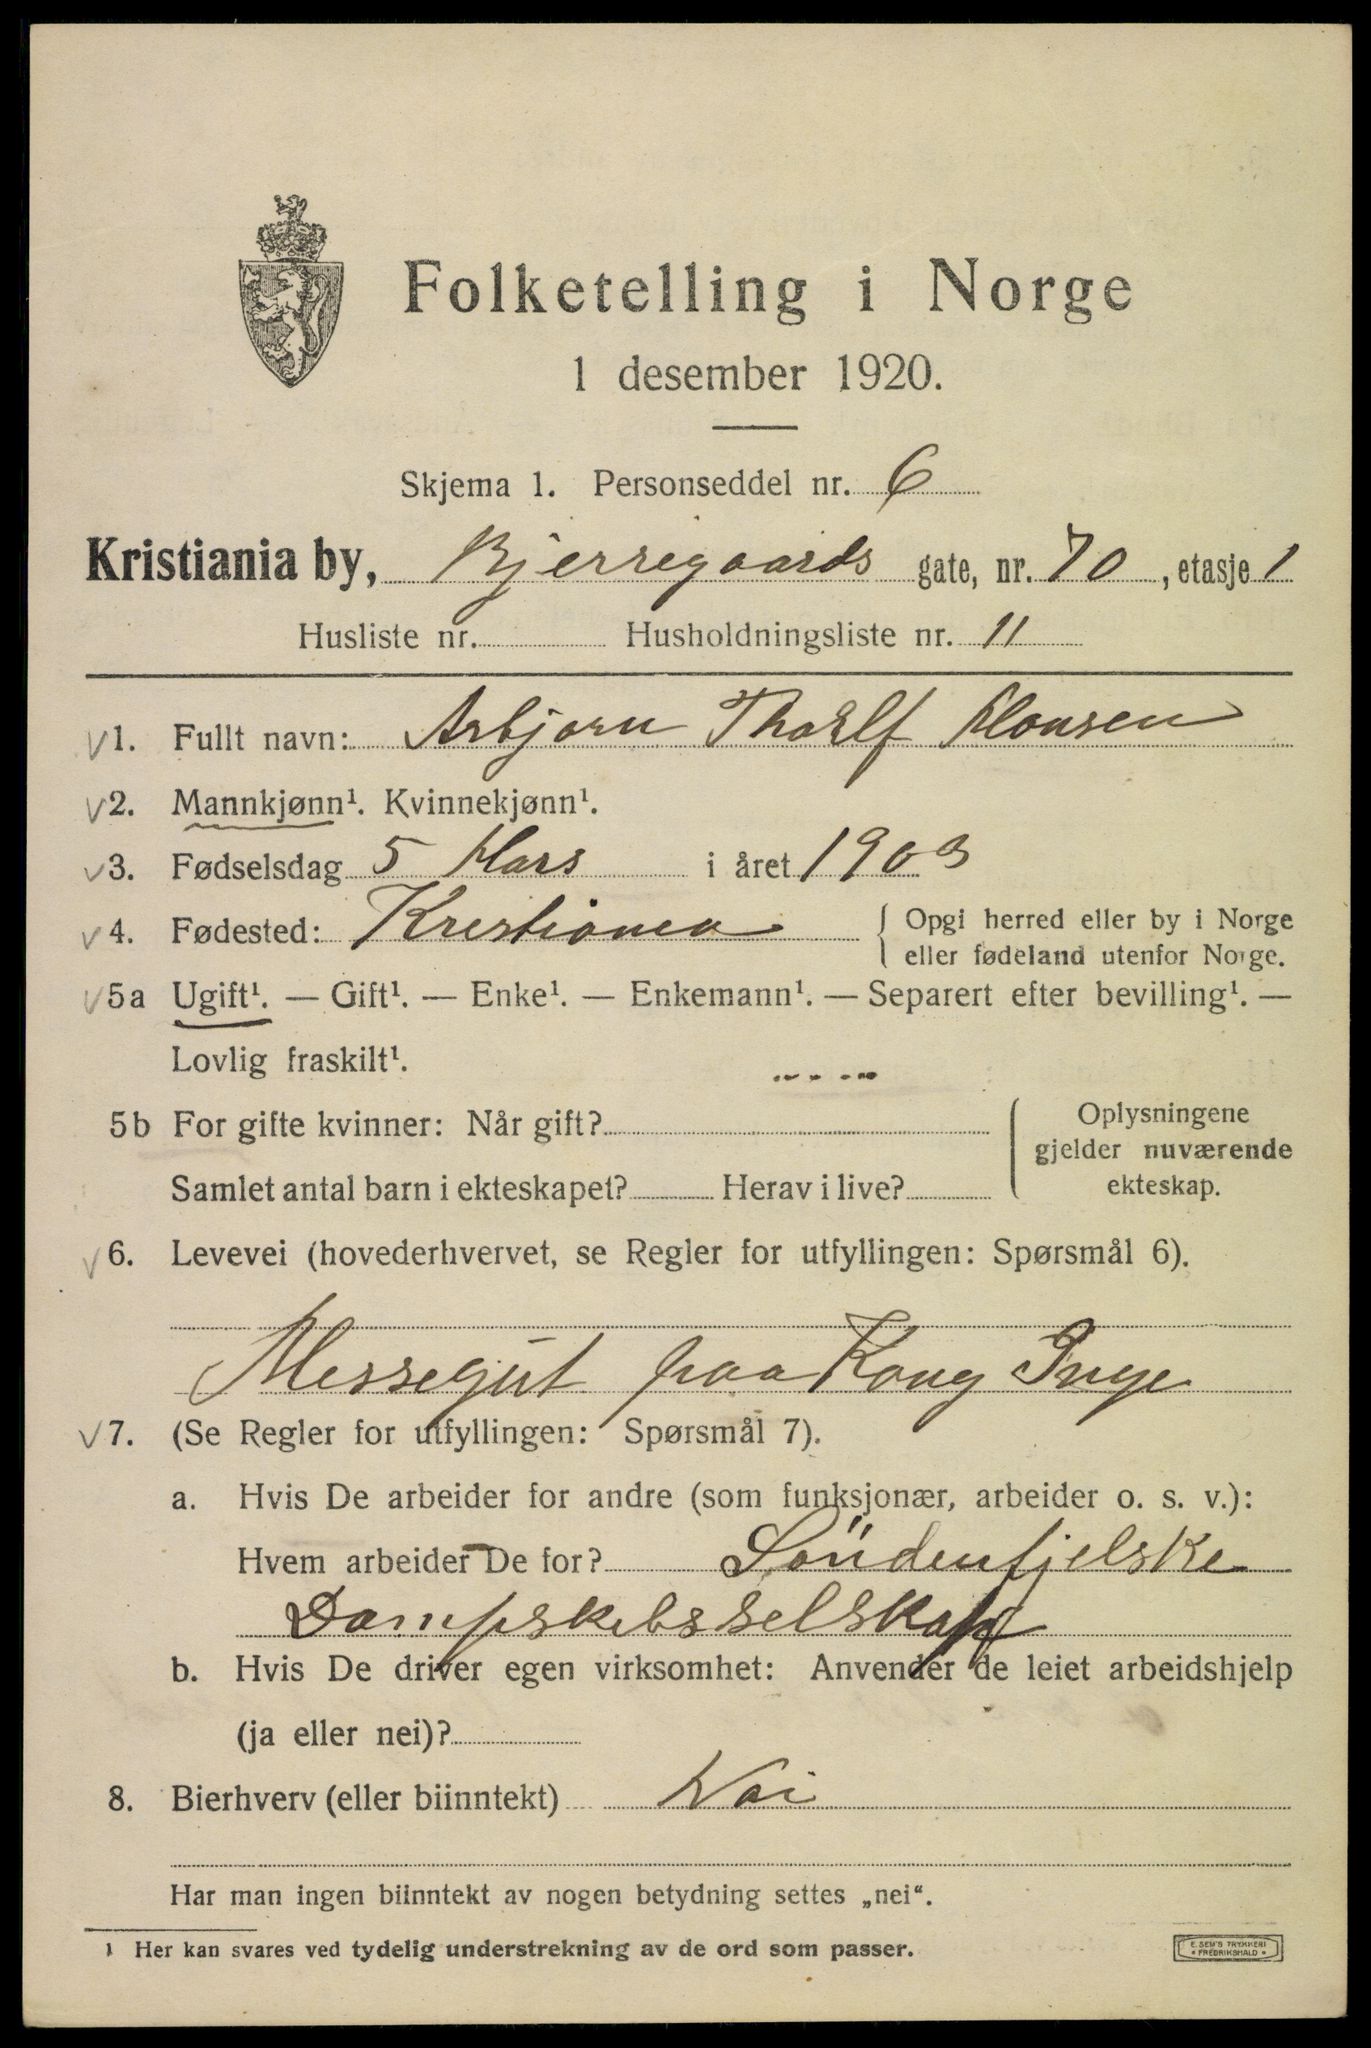 Folketelling i Norge
1 desember 1920.
Skjema 1. Personseddel nr. 6
Kristiania by, Bjerregaards gate, nr. 70, etasje 1
Husliste nr. Husholdningsliste nr. 11
1. Fullt navn: Asbjørn Thoralf Hansen
2. Mannkjønn¹. Kvinnekjønn¹.
3. Fødselsdag 5 Mars i året 1903
4. Fødested: Krestiania { Opgi herred eller by i Norge
eller fødeland utenfor Norge.
5a Ugift¹. — Gift¹. — Enke¹. — Enkemann¹. — Separert efter bevilling¹. —
Lovlig fraskilt¹.
5b For gifte kvinner: Når gift? { Oplysningene
gjelder nuværende
Samlet antal barn i ekteskapet? Herav i live? ekteskap.
6. Levevei (hovederhvervet, se Regler for utfyllingen: Spørsmål 6).
Messegut paa Kong Inge
7. (Se Regler for utfyllingen: Spørsmål 7).
a. Hvis De arbeider for andre (som funksjonær, arbeider o. s. v.):
Hvem arbeider De for? Söndenfjelske
Dampskibsselskap
b. Hvis De driver egen virksomhet: Anvender de leiet arbeidshjelp
(ja eller nei)?
8. Bierhverv (eller biinntekt) Nei
Har man ingen biinntekt av nogen betydning settes „nei“.
¹ Her kan svares ved tydelig understrekning av de ord som passer.
E. SEM'S TRYKKERI
* FREDRIKSHALD *